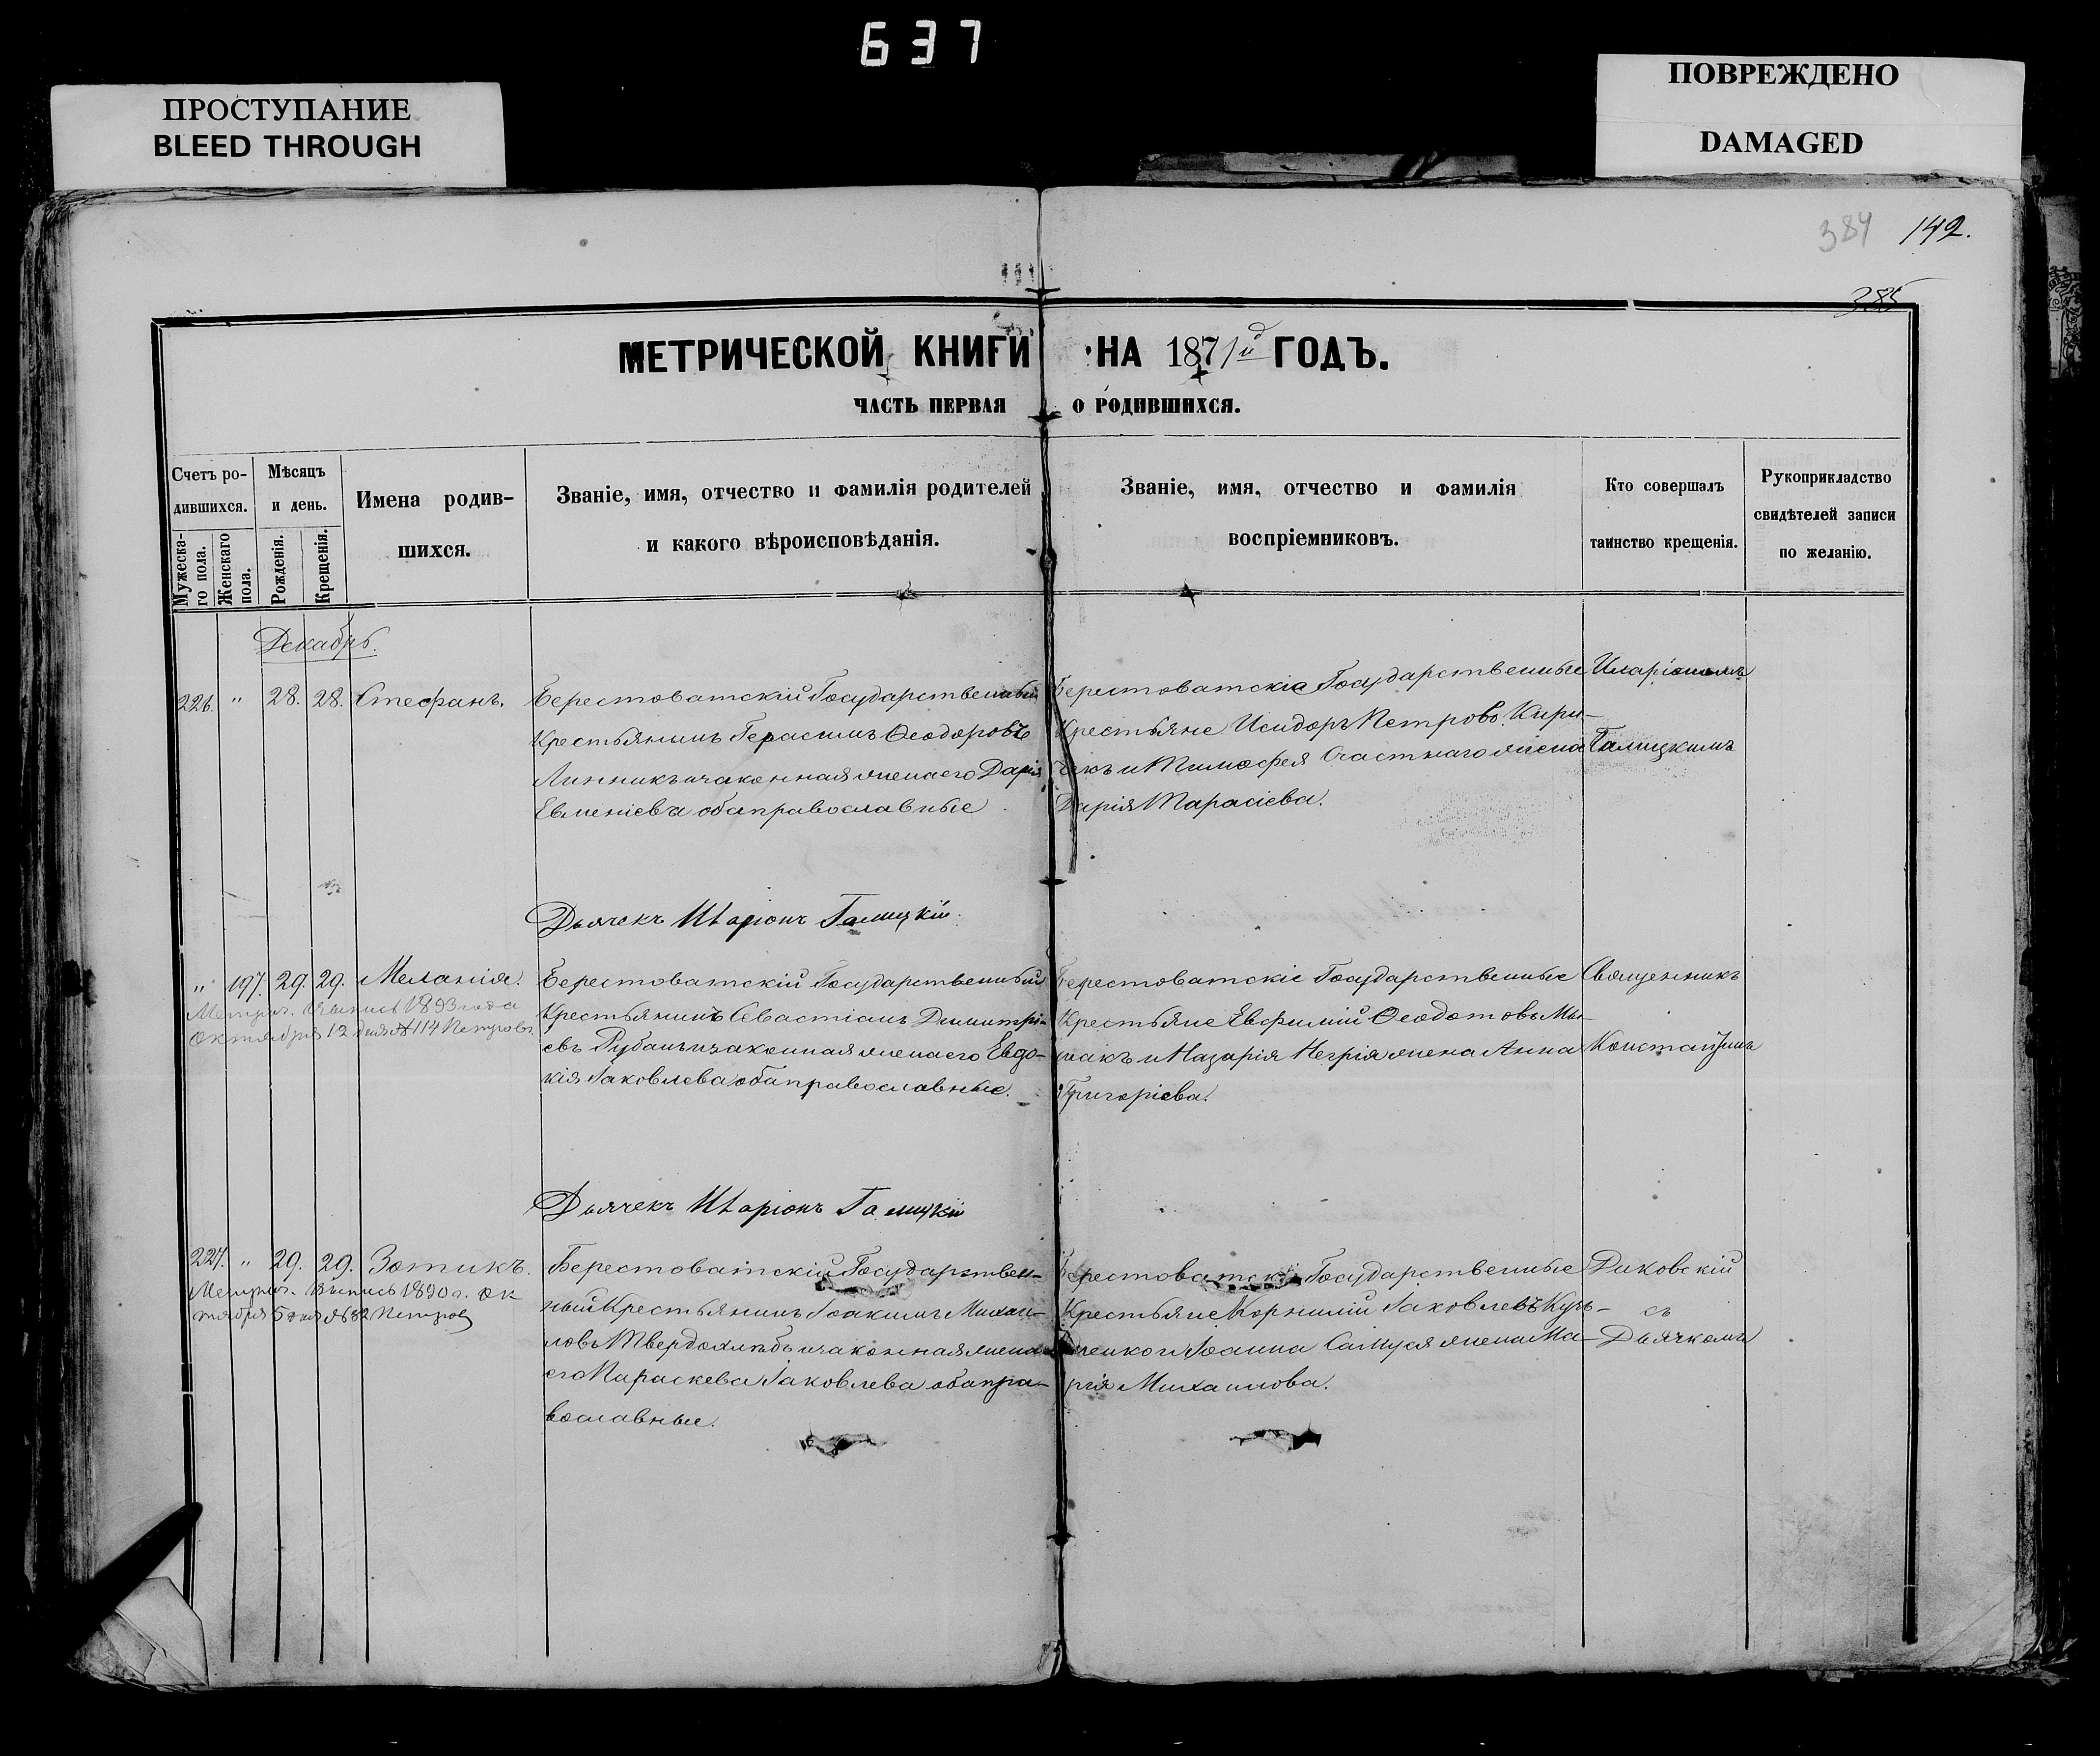 637
ПРОСТУПАНИЕ
BLEED THROUGH
ПОВРЕЖДЕНО
DAMAGED
384 142.
385
МЕТРИЧЕСКОЙ КНИГИ НА 1871й ГОДЪ.
ЧАСТЬ ПЕРВАЯ О РОДИВШИХСЯ.
Счетъ ро-
дившихся.
Мужеска-
го пола.
Женскаго
пола.
Мѣсяцъ
и день.
Рожденія.
Крещенія.
Имена родив-
шихся.
Званіе, имя, отчество и фамилія родителей
и какого вѣроисповѣданія.
Званіе, имя, отчество и фамилія
воспріемниковъ.
Кто совершалъ
таинство крещенія.
Рукоприкладство
свидѣтелей записи
по желанію.
Декабрь.
226. " 28. 28. Стефанъ.
Берестоватскій Государственный
Крестьянинъ Герасимъ Ѳеодоровъ
Линникъ и законная жена его Дарія
Евменіева оба православные
Берестоватскіе Государственные
Крестьяне Исидоръ Петровъ Кири-
чекъ и Тимофея Счастнаго жена
Дарія Тарасіева.
Иларіономъ
Галицкимъ
Дьячекъ Иларіонъ Галицкій.
" 197. 29. 29. Меланія.
Метрич. выпись 1893 года
октября 12 дня № 114 Петровъ
Берестоватскій Государственный
Крестьянинъ Севастіанъ Димитрі-
евъ Рубанъ и законная жена его Евдо-
кія Іаковлева оба православные.
Берестоватскіе Государственные
Крестьяне Евфимій Ѳеодотовъ
и Назарія Негрія жена Анна
Григоріева.
Священникъ
Константинъ
Дьячекъ Иларіонъ Галицкій
227. " 29. 29. Зотикъ.
Метрич. выпись 1890 г. ок
тября 5 дня № 82 Петров
Берестоватскій Государствен-
ный Крестьянинъ Іоакимъ Михаи-
ловъ Твердохлѣбъ и законная жена
его Параскева Іаковлева оба пра-
вославные.
Берестоватскіе Государственные
Крестьяне Корнилій Іаковлевъ
и Іоанна Самуся жена Ма-
рія Михаилова.
Диковскій
съ
Дьячкомъ